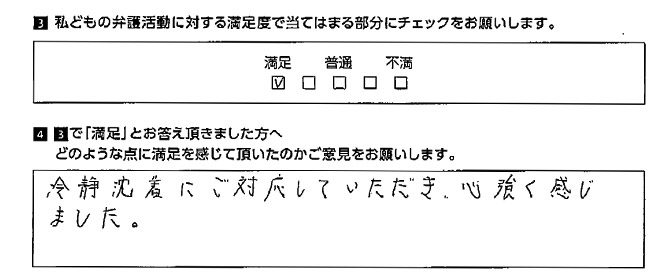 3 私どもの弁護活動に対する満足度で当てはまる部分にチェックをお願いします。
満足 普通 不満
☑ □ □ □ □
4 3で「満足」とお答え頂きました方へ
どのような点に満足を感じて頂いたのかご意見をお願いします。
冷静沈着にご対応していただき、心強く感じ
ました。